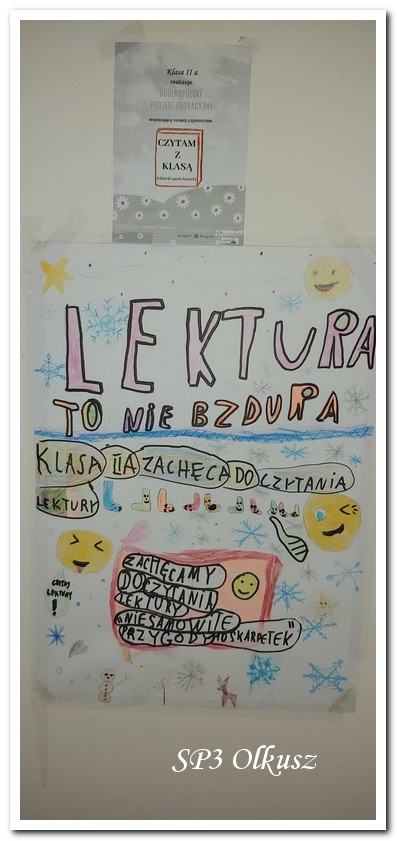 Klasa II a
realizuje
OGÓLNOPOLSKI
PROJEKT EDUKACYJNY
wspierający rozwój czytelnictwa
CZYTAM
Z
KLASĄ
LEKTURA
TO NIE BZDURA
KLASA IIA ZACHĘCA DO CZYTANIA
LEKTURY
CZYTAJ
LEKTURY
!
ZACHĘCAMY
DO CZYTANIA
LEKTURY
„NIESAMOWITE
PRZYGODY 10 SKARPETEK"
SP3 Olkusz